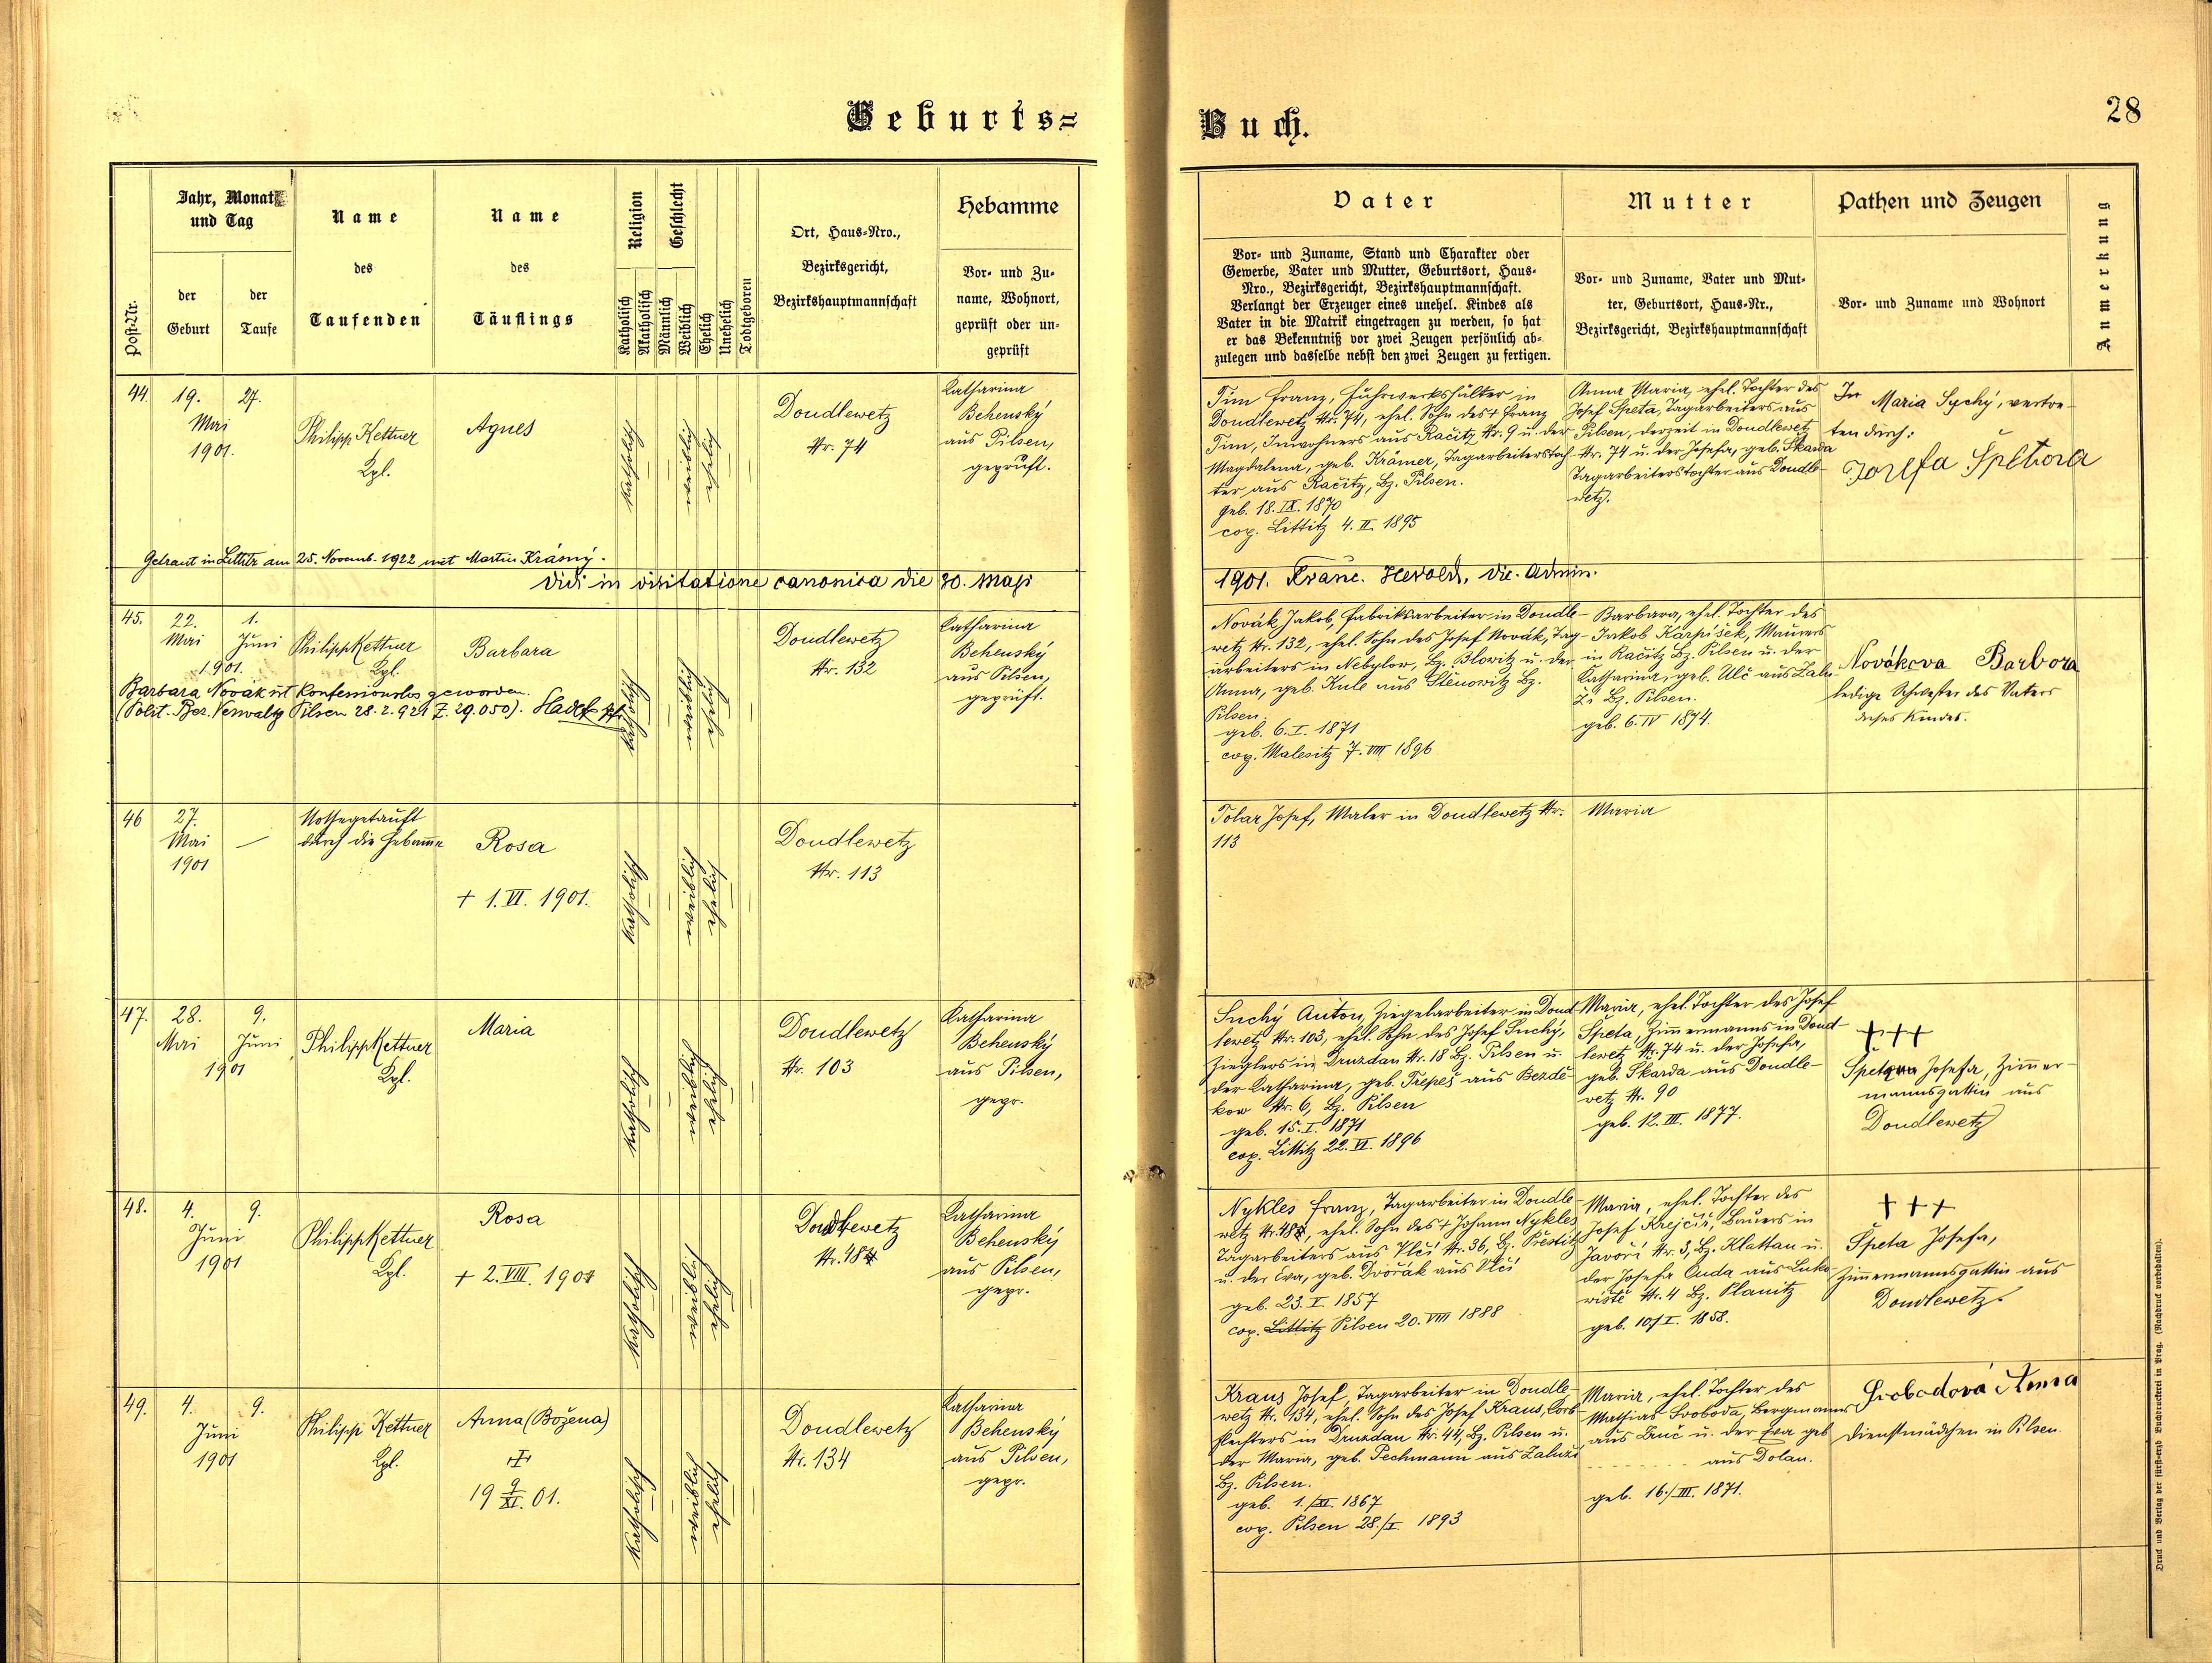 Geburts=
Buch.
28
Post-Nr.
Jahr, Monat
und Tag
der
Geburt
der
Taufe
Name
des
Taufenden
Name
des
Täuflings
Religion
Katholisch
Akatholisch
Geschlecht
Männlich
Weiblich
Ehelich
Unehelich
Todtgeboren
Ort, Haus-Nro.,
Bezirksgericht,
Bezirkshauptmannschaft
Hebamme
Vor- und Zu-
name, Wohnort,
geprüft oder un-
geprüft
Vater
Vor- und Zuname, Stand und Charakter oder
Gewerbe, Vater und Mutter, Geburtsort, Haus-
Nro., Bezirksgericht, Bezirkshauptmannschaft.
Verlangt der Erzeuger eines unehel. Kindes als
Vater in die Matrik eingetragen zu werden, so hat
er das Bekenntniß vor zwei Zeugen persönlich ab-
zulegen und dasselbe nebst den zwei Zeugen zu fertigen.
Mutter
Vor- und Zuname, Vater und Mut-
ter, Geburtsort, Haus-Nr.,
Bezirksgericht, Bezirkshauptmannschaft
Pathen und Zeugen
Vor- und Zuname und Wohnort
Anmerkung
44.
19.
Mai
1901.
27.
Philipp Kettner
Kpl.
Agnes
katholisch
weiblich
ehelich
Doudlewetz
Nr. 74
Katharina
Behenský
aus Pilsen,
geprüft.
Tim Franz, Fuhrwerkshälter in
Doudlewetz Nr. 74, ehel. Sohn des + Franz
Tim, Inwohners aus Račitz Nr. 9 u. der
Magdalena, geb. Krämer, Tagarbeiterstoch-
ter aus Račitz, Bz. Pilsen.
geb. 18. IX. 1870
cop. Littitz 4. II. 1895
Anna Maria, ehel. Tochter des
Josef Speta, Tagarbeiters aus
Pilsen, derzeit in Doudlewetz
Nr. 74 u. der Josefa, geb. Škarda
Tagarbeiterstochter aus Doudle-
wetz.
Maria Sychý, vertre-
ten durch:
Jozefa Špetova
Getraut in Littitz am 25. Novemb. 1922 mit Martin Krásný.
Vidi in visitatione canonica die 30. Maji
1901. Franc. Herold, vic. Admin.
45.
22.
Mai
1901.
1.
Juni
Philipp Kettner
Kpl.
Barbara
katholisch
weiblich
ehelich
Doudlewetz
Nr. 132
Katharina
Behenský
aus Pilsen,
geprüft.
Barbara Novák ist konfessionslos geworden.
(Polit. Bez. Verwaltg Pilsen 28.2.921 Z. 29.050).
Novák Jakob, Fabriksarbeiter in Doudle-
wetz Nr. 132, ehel. Sohn des Josef Novák, Tag-
arbeiters in Nebylov, Bz. Blowitz u. der
Anna, geb. Kule aus Stěnowitz Bz.
Pilsen.
geb. 6. I. 1871
cop. Malesitz 7. VIII 1896
Barbara, ehel. Tochter des
Jakob Karpíšek, Maurers
in Račitz Bz. Pilsen u. der
Katharina, geb. Ulč aus Zalu-
ži Bz. Pilsen.
geb. 6. IV 1874.
Nováková Barbora
ledige Schwester des Vaters
dieses Kindes.
46
27.
Mai
1901
—
Nothgetauft
durch die Hebamme
Rosa
+ 1. VI. 1901.
katholisch
weiblich
ehelich
Doudlewetz
Nr. 113
Tolar Josef, Maler in Doudlewetz Nr.
113
Maria
47.
28.
Mai
1901
9.
Juni
Philipp Kettner
Kpl.
Maria
katholisch
weiblich
ehelich
Doudlewetz
Nr. 103
Katharina
Behenský
aus Pilsen,
gepr.
Suchý Anton, Ziegelarbeiter in Doud-
lewetz Nr. 103, ehel. Sohn des Josef Suchý,
Zieglers in Druzdau Nr. 18 Bz. Pilsen u.
der Katharina, geb. Třepeš aus Bezdě-
kow Nr. 6, Bz. Pilsen
geb. 15. I. 1871
cop. Littitz 22. VI. 1896
Maria, ehel. Tochter des Josef
Speta, Zimmermanns in Doud-
lewetz Nr. 74 u. der Josefa,
geb. Skarda aus Doudle-
wetz Nr. 90
geb. 12. III. 1877.
+++
Josefa, Zimmer-
mannsgattin aus
Doudlewetz
48.
4.
Juni
1901
9.
Philipp Kettner
Kpl.
Rosa
+ 2. VIII. 1901
katholisch
weiblich
ehelich
Doudlewetz
Katharina
Behenský
aus Pilsen,
gepr.
Nykles Franz, Tagarbeiter in Doudle-
wetz, ehel. Sohn des + Johann Nykles
Tagarbeiters aus Vlčí Nr. 36, Bz. Přestitz
u. der Eva, geb. Dvořák aus Vlčí
geb. 23. I. 1857
cop. Littitz Pilsen 20. VIII 1888
Maria, ehel. Tochter des
Josef Krejčiř, Bauers in
Javoří Nr. 3, Bz. Klattau u.
der Josefa Ouda aus Luko-
wiště Nr. 4 Bz. Planitz
geb. 10/I. 1858.
+++
Špeta Josefa,
Zimmermannsgattin aus
Doudlewetz.
49.
4.
Juni
1901
9.
Philipp Kettner
Kpl.
Anna (Božena)
+
19 9/XI. 01.
katholisch
weiblich
ehelich
Doudlewetz
Nr. 134
Katharina
Behenský
aus Pilsen,
gepr.
Kraus Josef, Tagarbeiter in Doudle-
wetz Nr. 134, ehel. Sohn des Josef Kraus, Korb-
flechters in Druzdau Nr. 44, Bz. Pilsen u.
der Maria, geb. Pechmann aus Zaluži
Bz. Pilsen.
geb. 1./XI. 1867
cop. Pilsen 28./I. 1893
Maria, ehel. Tochter des
Mathias Svoboda, Bergmanns
aus Zruč u. der Eva geb
aus Dolan.
geb. 16./III. 1871.
Svobodová Anna
Dienstmädchen in Pilsen.
Druck und Verlag der fürst-erzb. Buchdruckerei in Prag. (Nachdruck vorbehalten).